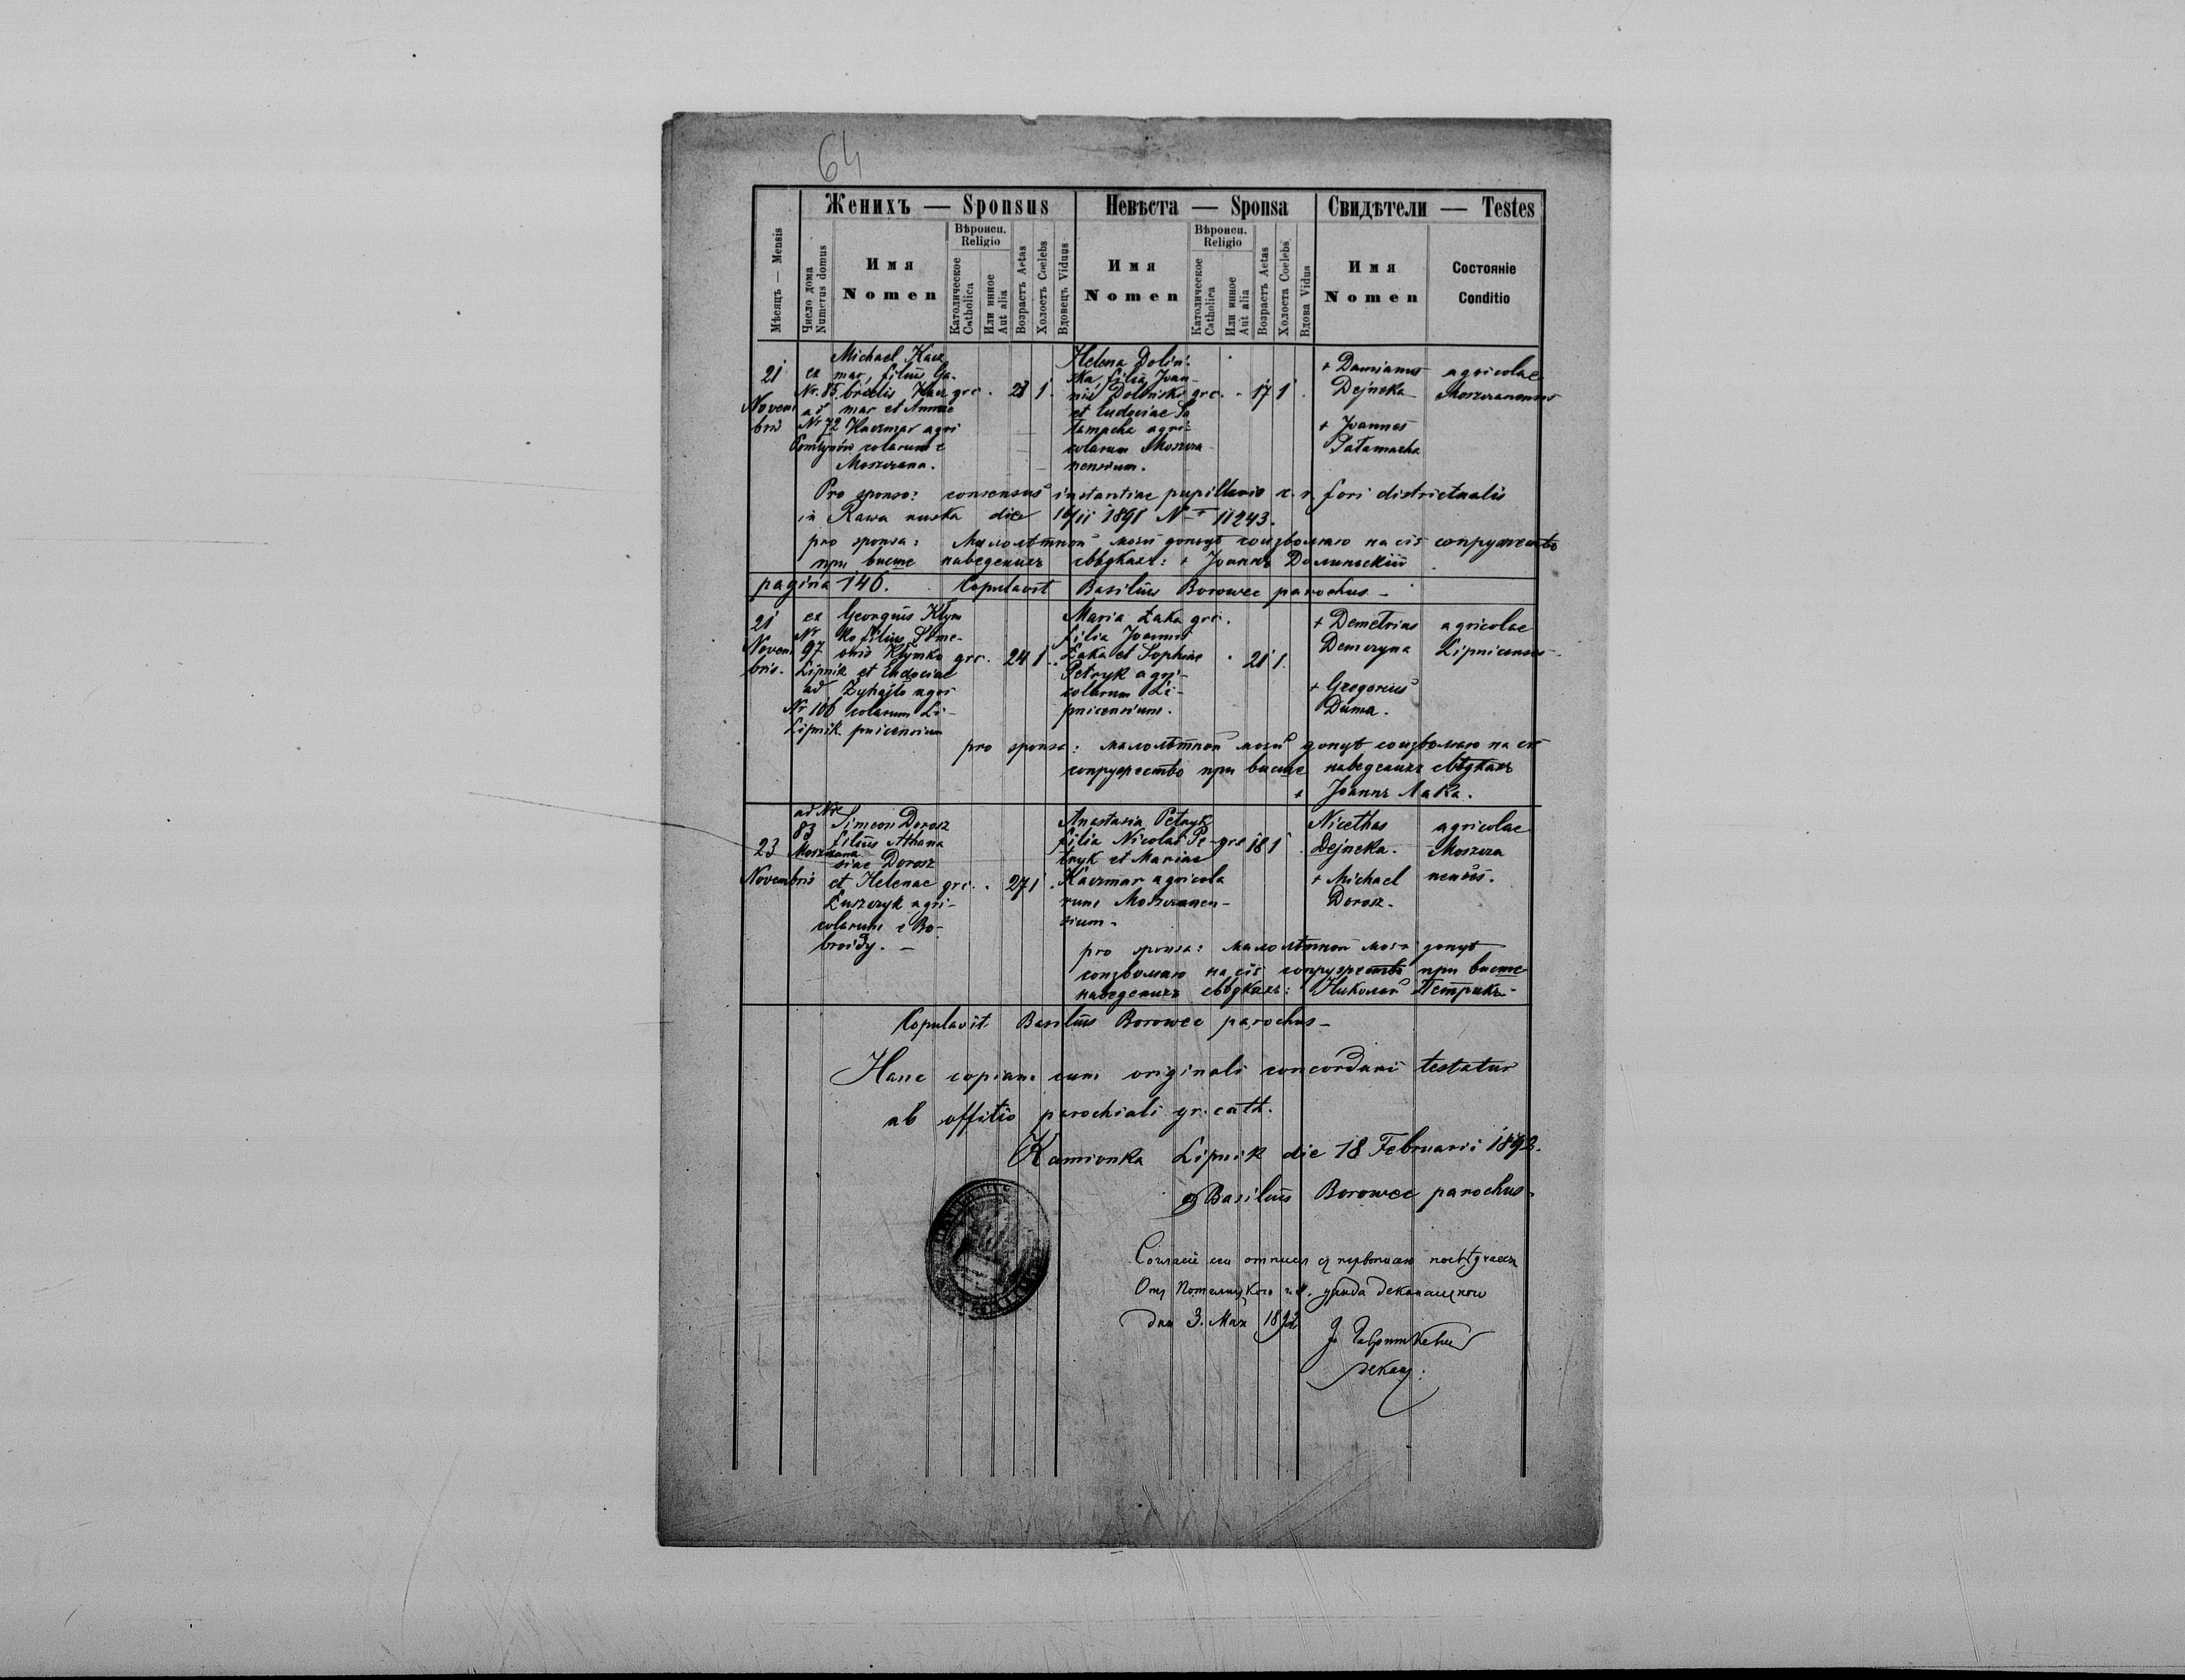 64
Женихъ — Sponsus
Невѣста — Sponsa
Свидѣтели — Testes
Мѣсяцъ — Mensis
Число дома
Numerus domus
Имя
Nomen
Вѣроисп.
Religio
Католическое
Catholica
Или инное
Aut alia
Возрастъ Aetas
Холостъ Coelebs
Вдовецъ Viduus
Имя
Nomen
Вѣроисп.
Religio
Католическое
Catholica
Или инное
Aut alia
Возрастъ Aetas
Холоста Coelebs
Вдова Vidua
Имя
Nomen
Состояніе
Conditio
21
Novem
bris
ex
Nr. 85
ad
Nr 72
Michael Kacz
mar, filius Ga-
brielis Kacz
mar et Annae
Kaczmar agri
colarum e
Moszczana.
grc. 1
Helena Dolin-
ska, filia Joan-
nis Dolinski
et Eudociae Sa
tamacha agri-
colarum Moszcza
nensium.
grc. 17 1
+ Damianus
Dejneka
+ Joannes
Satamacha
agricolae
Moszczanenses
Pro sponso: consensus instantiae pupillaris c. r. fori districtualis
in Rawa ruska die 16/11 1891 N 11243.
pro sponsa: Малолѣтной моей донцѣ соизволяю на сіе сопружество
при висше наведенихъ свѣдкахъ: + Іоаннъ Долиньскій
pagina 146. Copulavit Basilius Borowec parochus -
21
Novem
bris.
ex
Nr
97
Lipnik
ad
Nr 106
Lipnik
Georgius Klym
ko filius Sime-
onis Klymko
et Eudociae
Zyhajlo agri
colarum Li-
pnicensium
grc. 24 1
Maria Łaka grc.
filia Joannis
Łaka et Sophiae
Petryk agri-
colarum Li-
pnicensium.
21 1
+ Demetrius
Demczyna
+ Gregorius
Duma.
agricolae
Lipnicenses
pro sponsa: малолѣтной моей донцѣ соизволяю на сіе
сопружество при висше наведенихъ свѣдкахъ
+ Іоаннъ Лака.
23
Novembris
ad Nr
83
Moszczana
Simeon Dorosz
filius Athana
siae Dorosz
et Helenae
Łuszczyk agri-
colarum e Bo-
broidy. -
grc. 27 1
Anastasia Petryk
filia Nicolai Pe-
tryk et Mariae
Kaczmar agricola
rum Moszczanen-
sium-
grc 18 1
Nicethas
Dejneka.
+ Michael
Dorosz-
agricolae
Moszcza
nenses.
pro sponsa: малолѣтной моей донцѣ
соизволяю на сіе сопружество при висше
наведенихъ свѣдкахъ: Николай Петрикъ-
Copulavit Basilius Borowec parochus -
Hanc copiam cum originali concordare testatur
ab offitio parochiali gr. cath.
Kamionka Lipnik die 18 Februarii 1892.
Basilius Borowec parochus.
Согласіе сей отписи съ первописею посвѣдчаетъ
Отъ Потелицкого
дня 3. Мая 1892
декан: